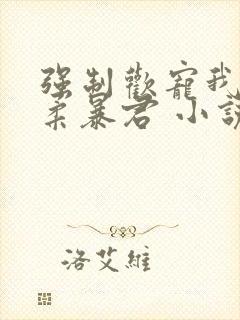 強制歡寵我
柔暴君 小說
洛艾維